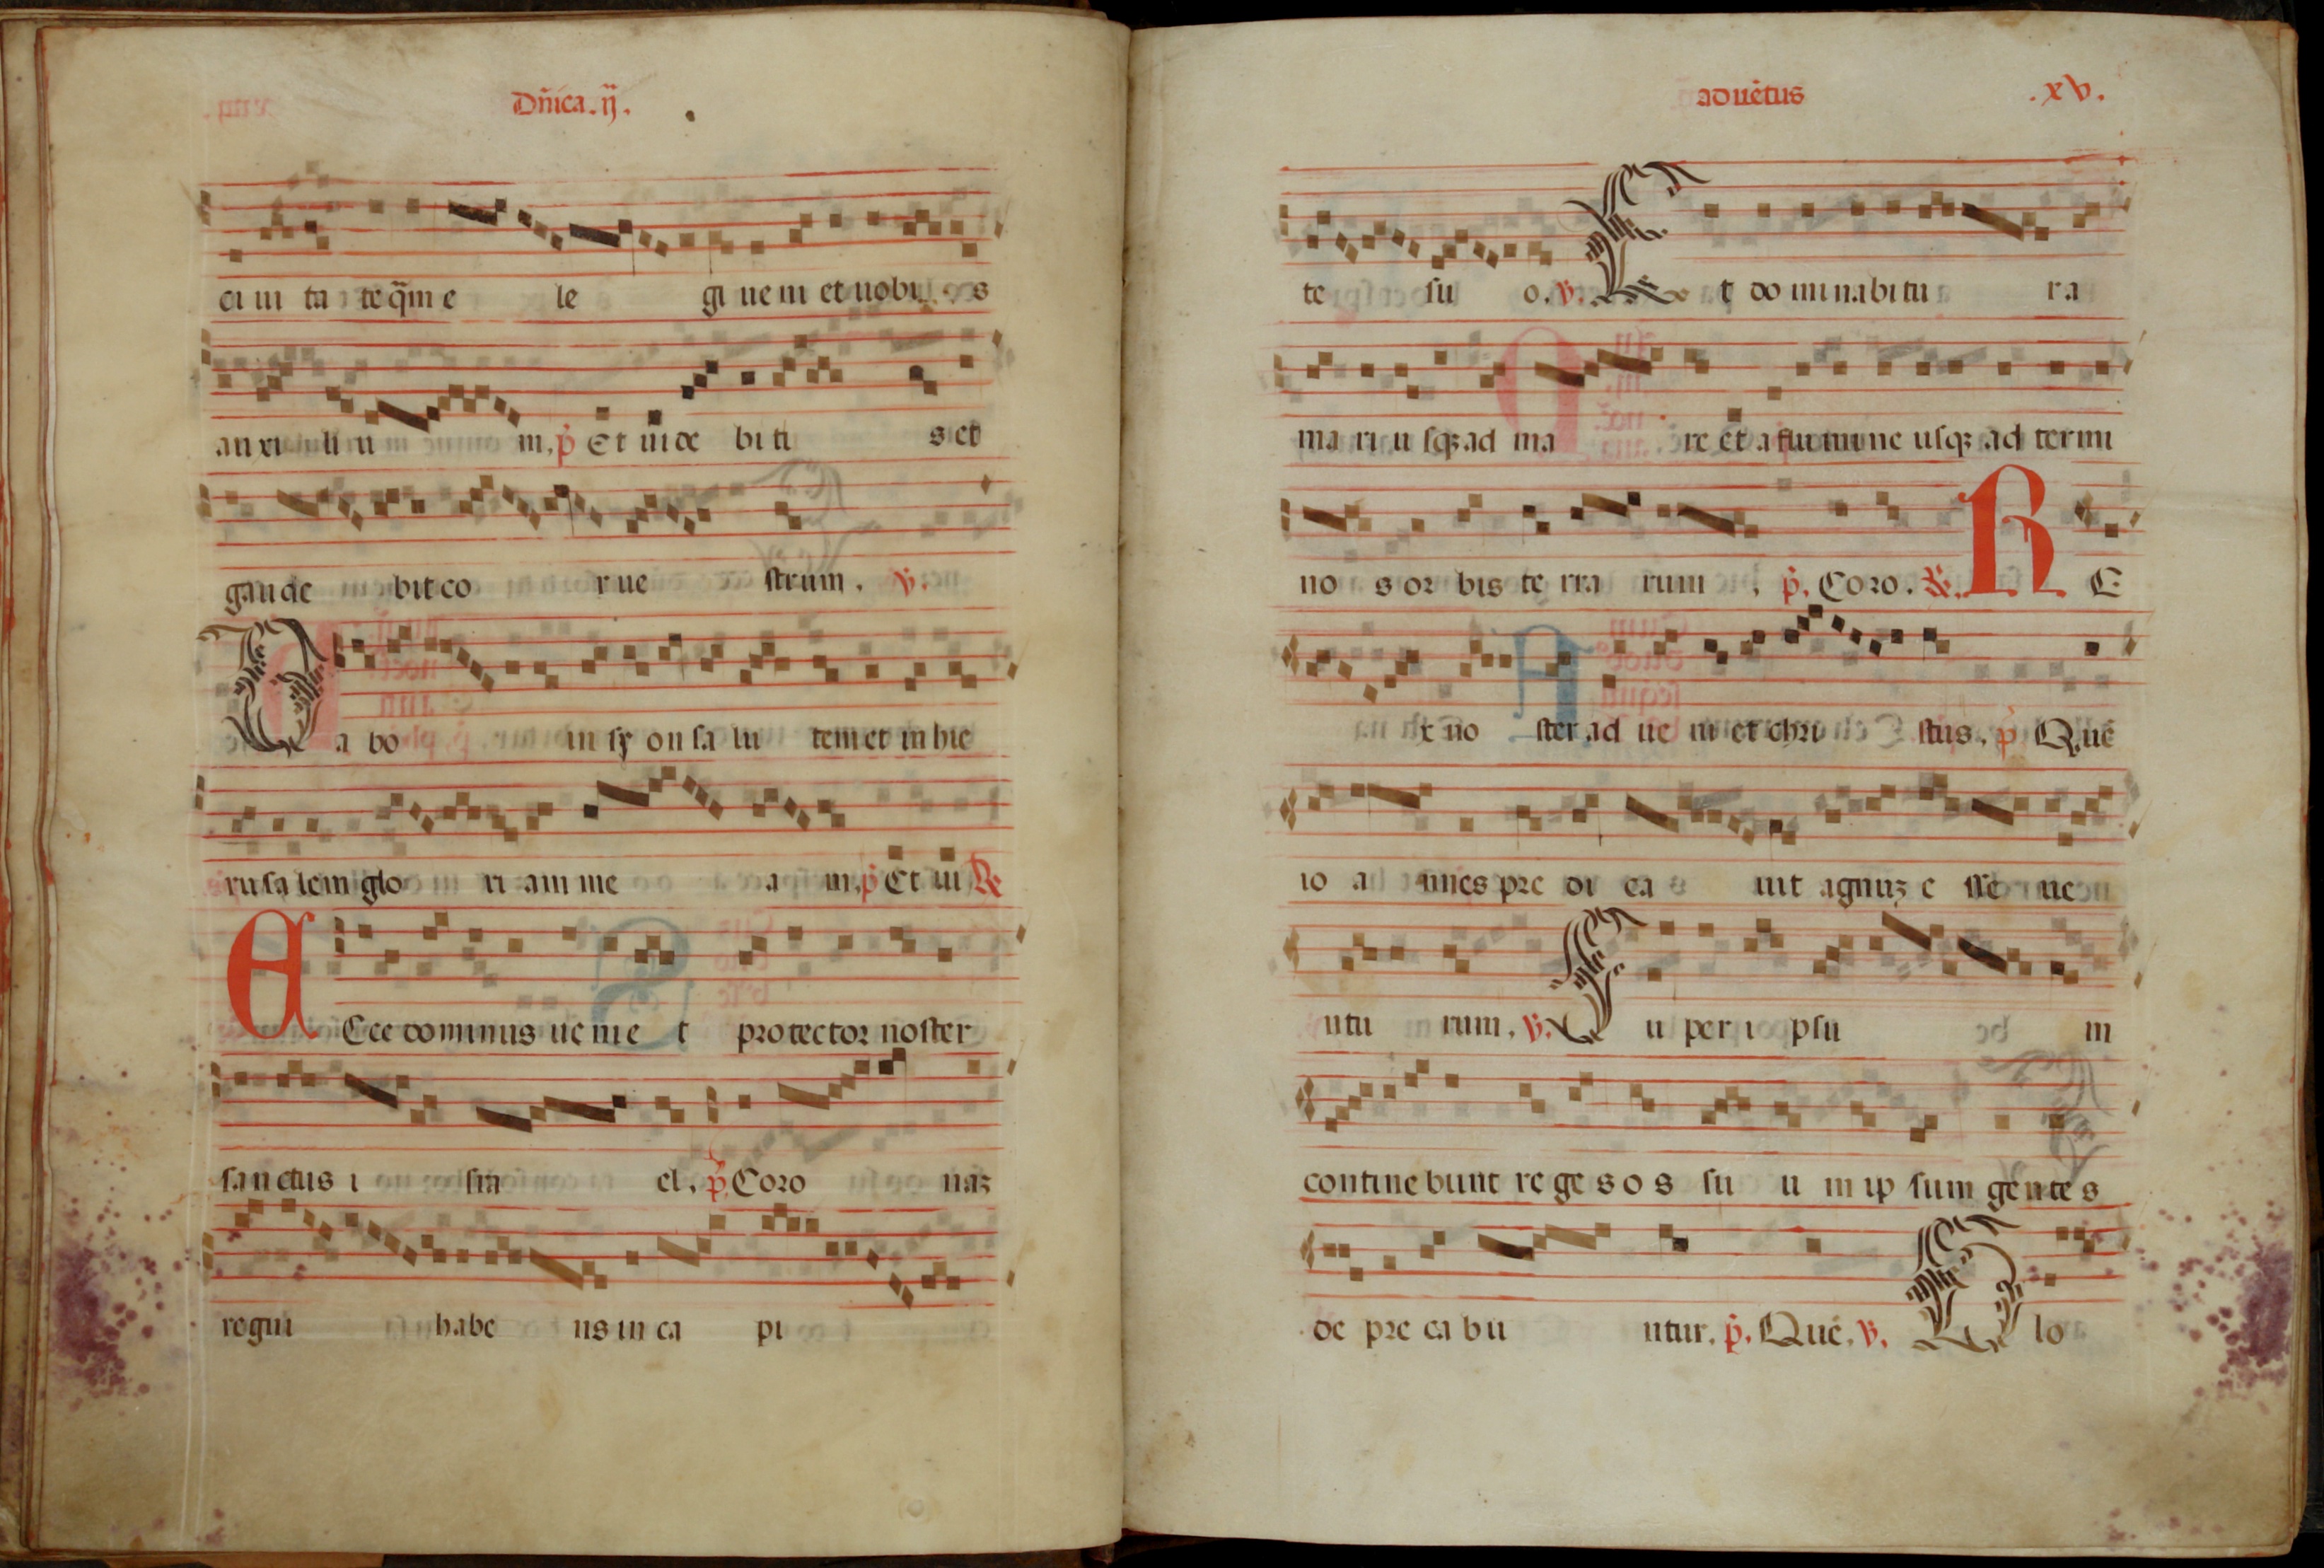 Dñica. ij.
ciui ta te q̃m e le gi ueni et uobis
auxi li u m. p̃ Et uide bi ti s et
gaude bit co r ue strum. v.
D a bo in syon salu tem et in hie
rusalem glo ri am me a m. p̃ Et ui R
E Cce dominus uenie t protector noster
sanctus i sra el. p̃ Coro naz
regni habe ns in ca pi
aduētus .xv.
te su o. v. E t dominabitu r a
ma ri usqz ad ma re et a flumine usqz ad termi
no s orbis te rra rum. p̃. Coro. R E
x no ster ad ue ni et chri stus. p̃ Quē
io a nnes pre di ca uit agnuz e sse ue
utu rum. v. S uper i psu m
contine bunt re ge s o s su u m ip sum gentes
de pre ca bu ntur. p̃. Quē. v. lo